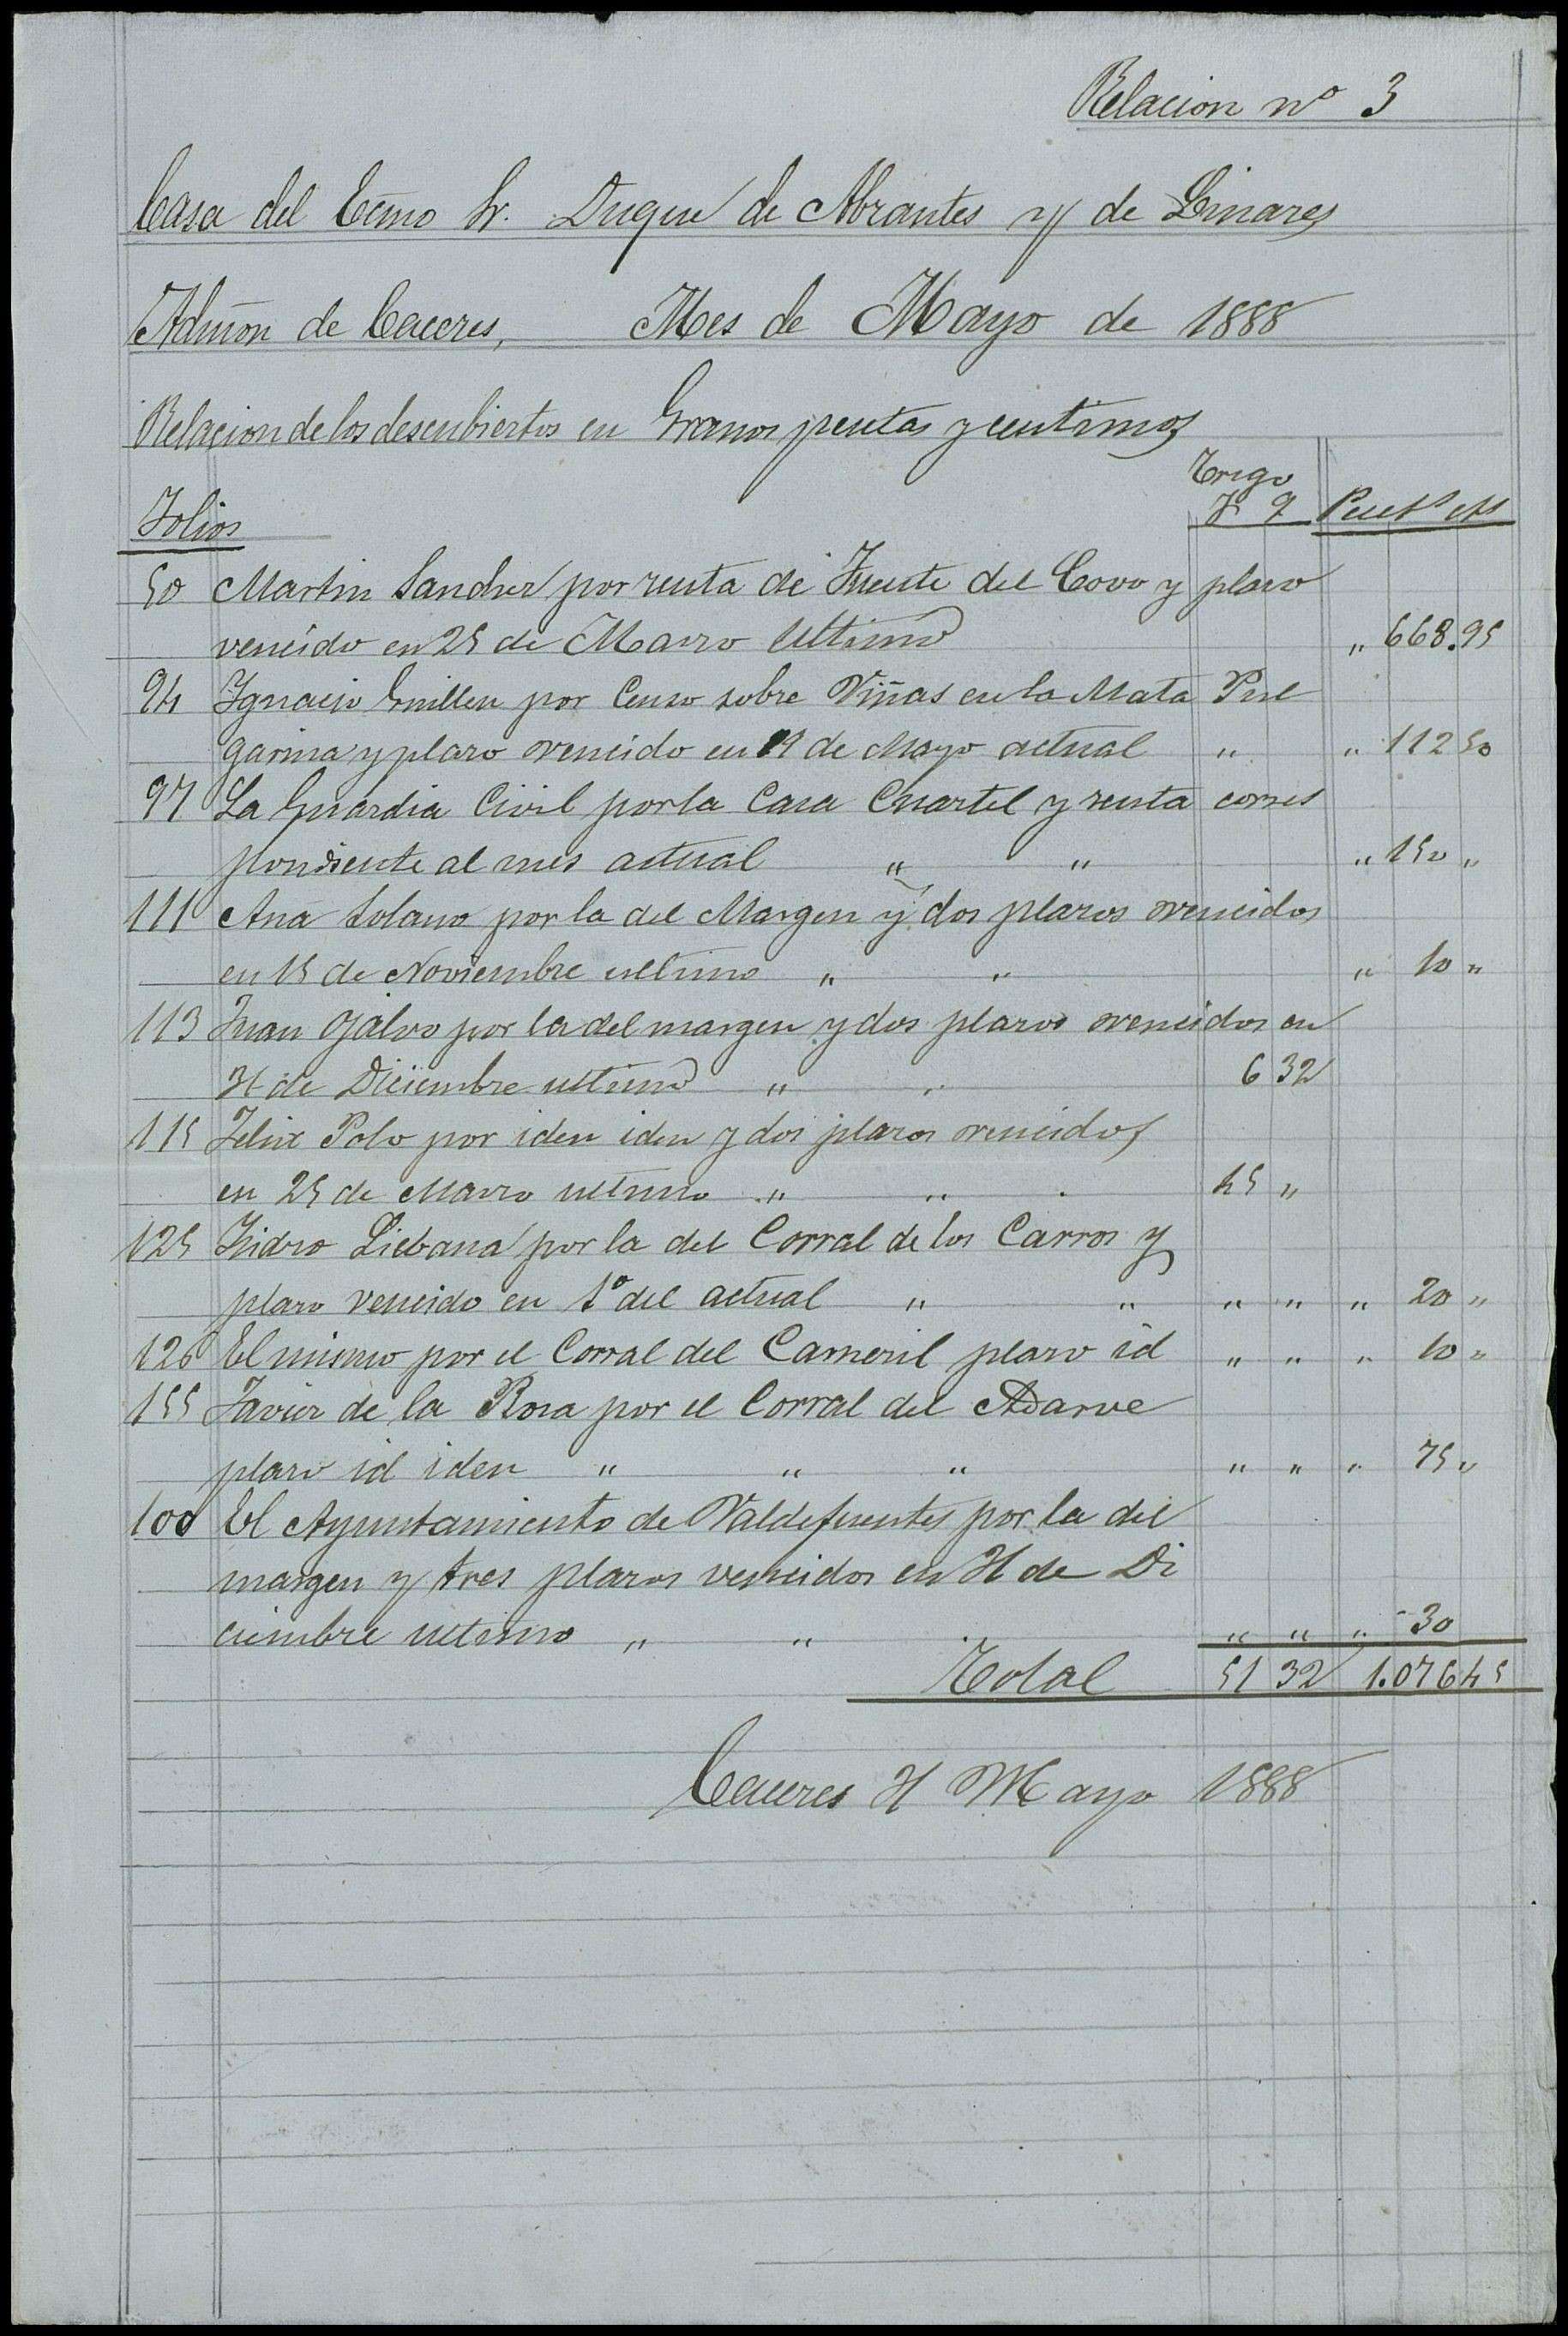 Relacion nº 3
Casa del Ecmo Sr. Duque de Abrantes y de Linares
Admon de Caceres, Mes de Mayo de 1888
Relacion de los descubiertos en Granos pesetas y centimos
Trigo
Folios F Q Peset.s cts
50 Martin Sanchez por renta de Fuente del Covo y plazo
vencido en 25 de Marzo ultimo " 668.95
94 Ignacio Guillen por Censo sobre Viñas en la Mata Pul
garina y plazo vencido en 19 de Mayo actual " " 112 50
97 La Guardia Civil por la Casa Cuartel y renta corres
pondiente al mes actual " " " 150 "
111 Ana Solano por la del Margen y dos plazos vencidos
en 15 de Noviembre ultimo " " " 10 "
113 Juan Galvo por la del margen y dos plazos vencidos en
31 de Diciembre ultimo " " 6 32
115 Felix Polo por iden iden y dos plazos vencidos
en 25 de Marzo ultimo " " 45 "
125 Isidro Liebana por la del Corral de los Carros y
plazo vencido en 1º del actual " " " " " 20 "
126 El mismo por el Corral del Carneril plazo id " " " 10 "
155 Javier de la Rosa por el Corral del Adarve
plazo id iden " " " " " " 75 "
100 El Ayuntamiento de Valdefuentes por la del
margen y tres plazos vencidos en 31 de Di
ciembre ultimo " " " " " 30
Total 51 32 1.076 45
Caceres 31 Mayo 1888